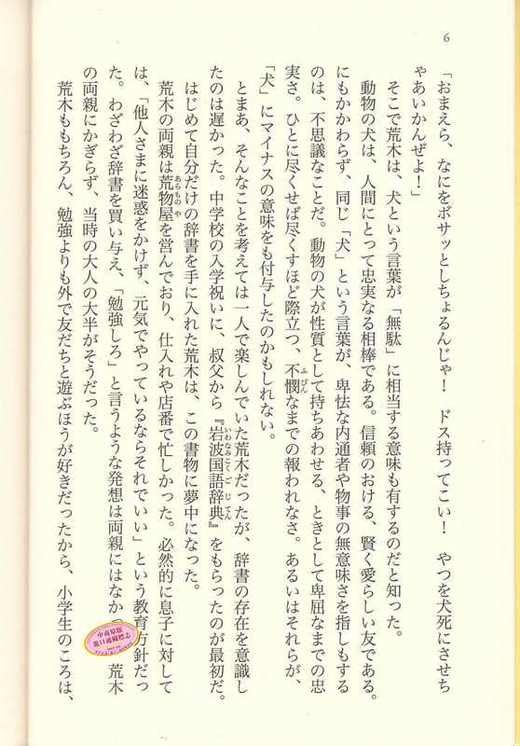 6
「おまえら、なにをボサッとしちょるんじゃ！　ドス持ってこい！　やつを犬死にさせち
ゃあいかんぜよ！」
そこで荒木は、犬という言葉が「無駄」に相当する意味も有するのだと知った。
動物の犬は、人間にとって忠実なる相棒である。信頼のおける、賢く愛らしい友である。
にもかかわらず、同じ「犬」という言葉が、卑怯な内通者や物事の無意味さを指しもする
のは、不思議なことだ。動物の犬が性質として持ちあわせる、ときとして卑屈なまでの忠
実さ。ひとに尽くせば尽くすほど際立つ、不憫なまでの報われなさ。あるいはそれらが、
ふびん
「犬」にマイナスの意味をも付与したのかもしれない。
とまあ、そんなことを考えては一人で楽しんでいた荒木だったが、辞書の存在を意識し
たのは遅かった。中学校の入学祝いに、叔父から『岩波国語辞典』をもらったのが最初だ。
いわなみこくごじてん
はじめて自分だけの辞書を手に入れた荒木は、この書物に夢中になった。
荒木の両親は荒物屋を営んでおり、仕入れや店番で忙しかった。必然的に息子に対して
あらものや
は、「他人さまに迷惑をかけず、元気でやっているならそれでいい」という教育方針だっ
た。わざわざ辞書を買い与え、「勉強しろ」と言うような発想は両親にはなか
荒木
の両親にかぎらず、当時の大人の大半がそうだった。
荒木ももちろん、勉強よりも外で友だちと遊ぶほうが好きだったから、小学生のころは、